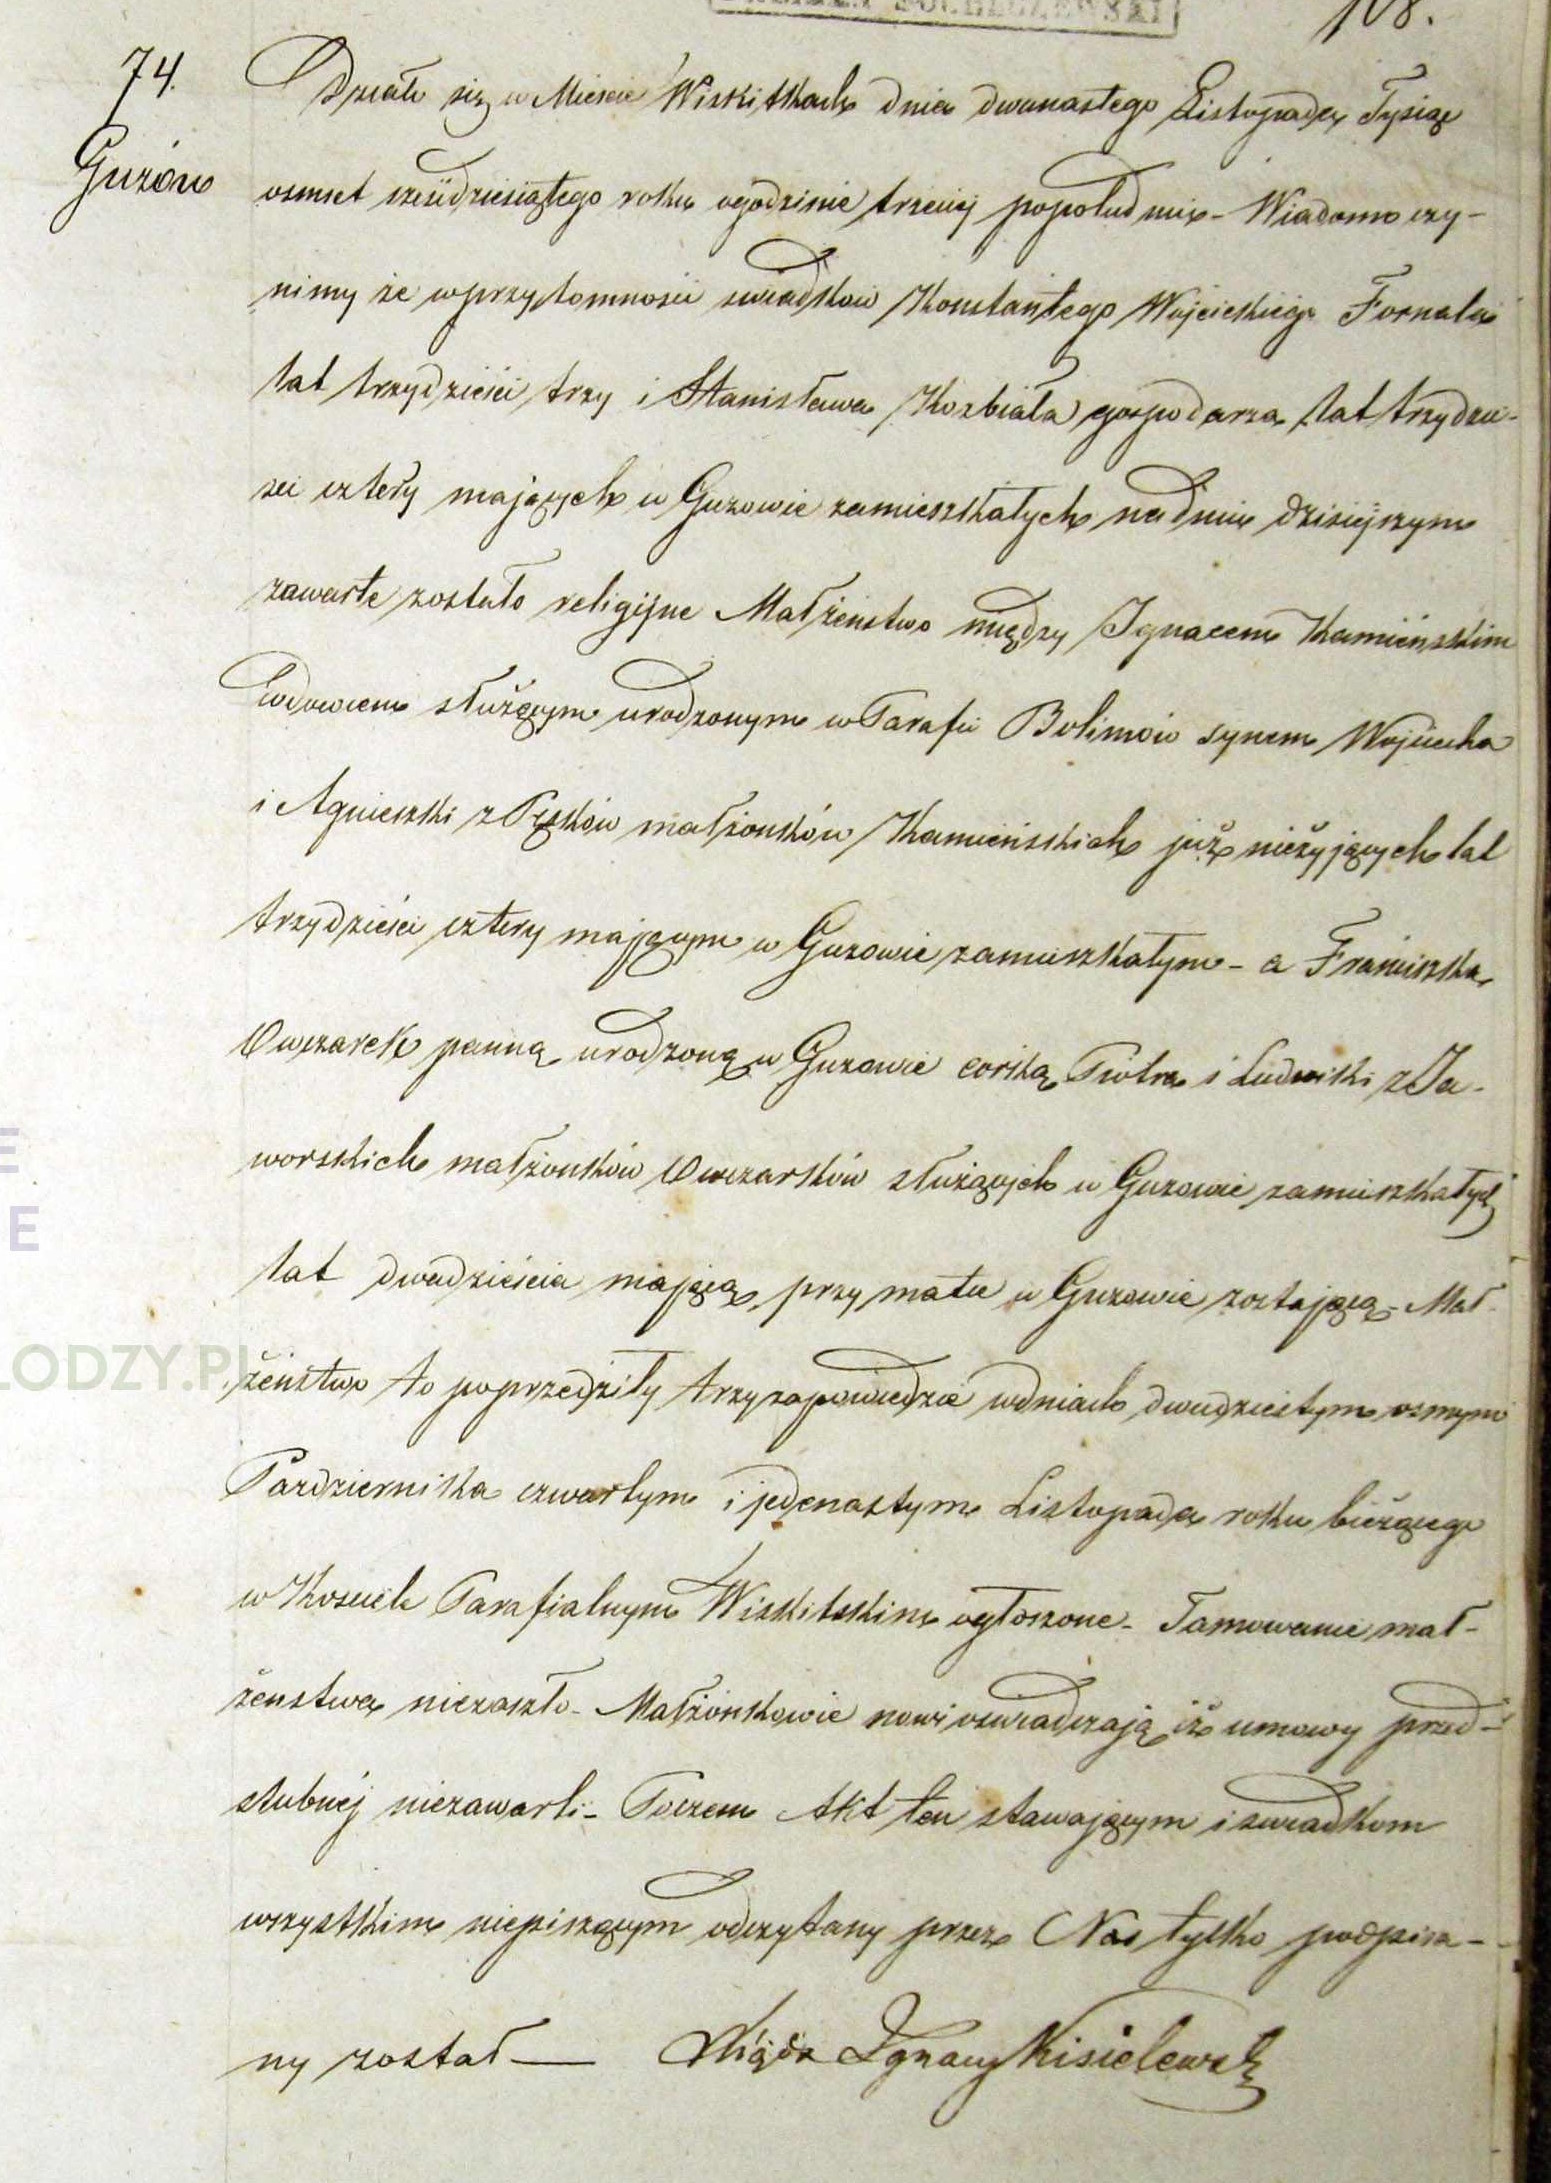 108.
74.
Guzów
Działo się w Mieście Wiskitkach dnia dwunastego Listopada Tysiąc
osmset sześdziesiątego roku ogodzinie trzeciej popołudniu - Wiadomo czy-
nimy że wprzytomności świadków Konstantego Wojcickiego Fornala
lat trzydzieści trzy i Stanisława Kozbiała gospodarza lat trzydzie-
ści cztery mających w Guzowie zamieszkałych nadniu dzisiejszym
zawarte zostało religijne Małżeństwo między Ignacem Kamieńskim
Wdowcem służącym urodzonym w Parafii Bolimów synem Wojciecha
i Agnieszki z małżonków Kamieńskich już nieżyjących lat
trzydzieści cztery mającym w Guzowie zamieszkałym - a Franciszką
Owczarek panną urodzoną w Guzowie corką Piotra i Ludwiki z Ja-
worskich małżonków Owczarków służących w Guzowie zamieszkałych
lat dwadzieścia mającą przy matce w Guzowie zostającą - Mał-
żeństwo to poprzedziły trzy zapowiedzie wdniach dwudziestym osmym
Pazdziernika czwartym i jedenastym Listopada roku bieżącego
w Kosciele Parafialnym Wiskitskim ogłoszone - Tamowanie mał-
żenstwa niezaszło - Małżonkowie nowi oswiadczają iż umowy przed-
slubnéj niezawarli - Poczem Akt ten stawającym i swiadkom
wszystkim niepiszącym odczytany przez Nas tylko podpisa-
ny został — Xiądz Ignacy Kisielewski
E
E
LODZY.PL